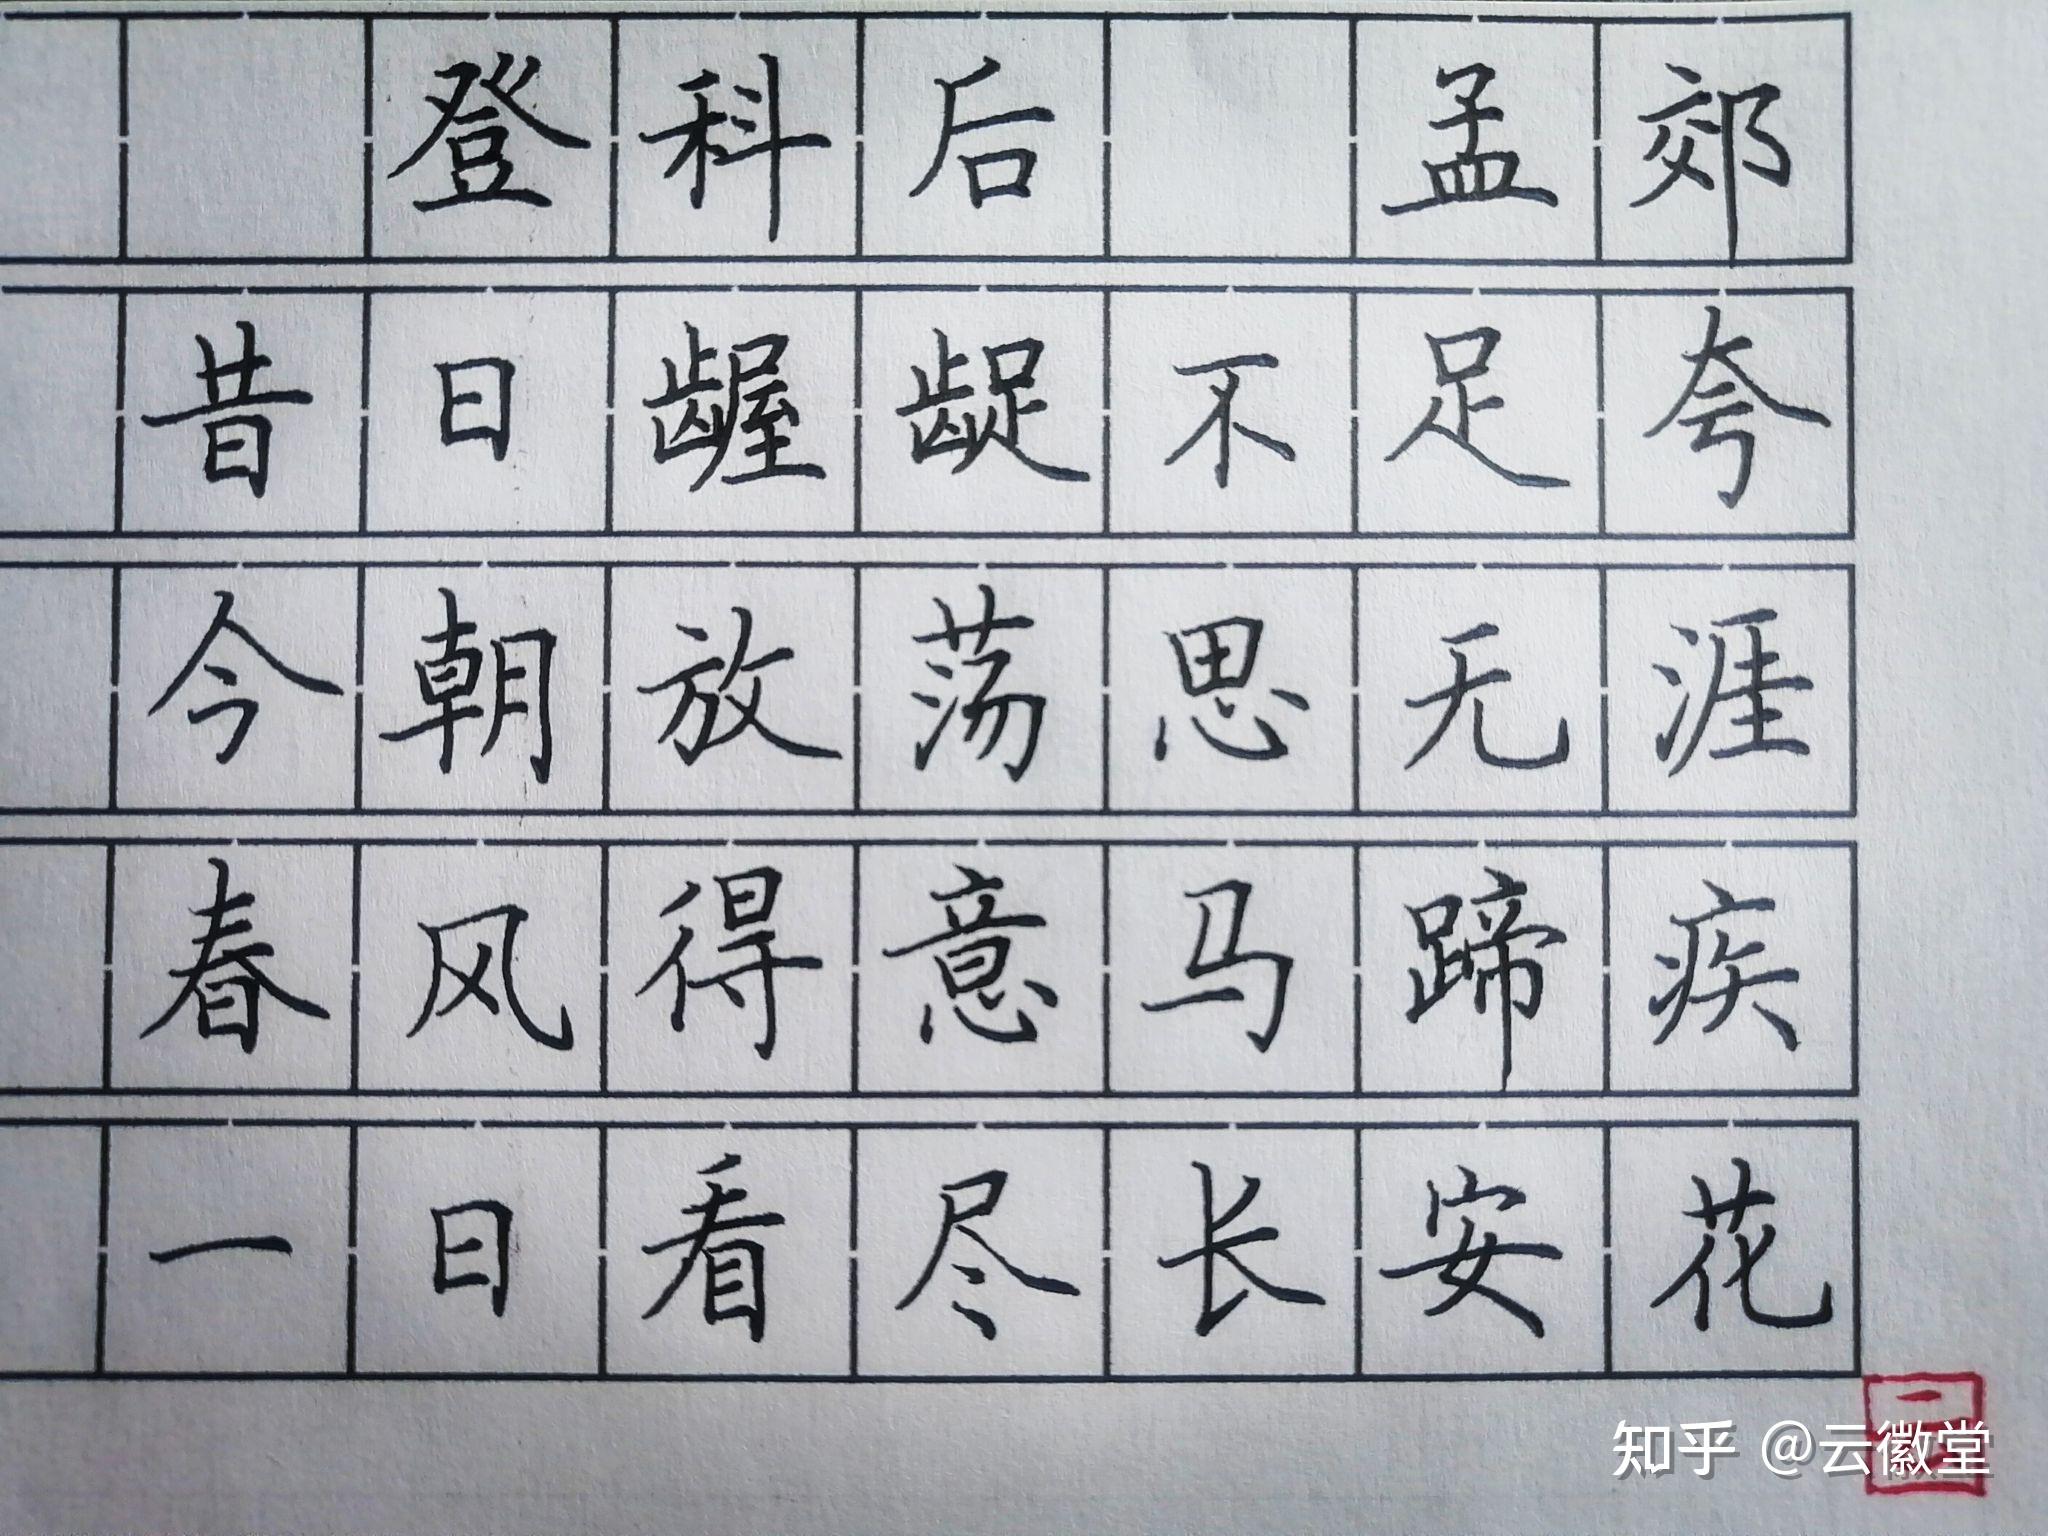 登科后 孟郊
昔日龌龊不足夸
今朝放荡思无涯
春风得意马蹄疾
一日看尽长安花
知乎 @云徽堂